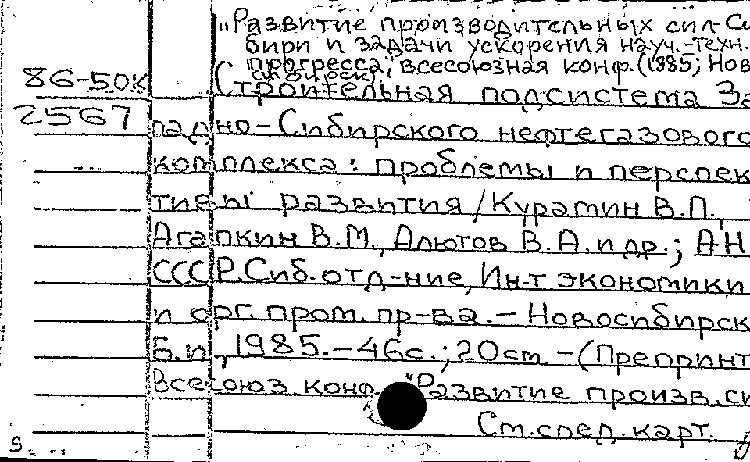 „Развитие производительных сил Си-
бири и задачи ускорения науч.-техн.
прогресса", всесоюзная конф. (1985; Нов
сибирск)
86-50К Строительная подсистема За
2567 падно-Сибирского нефтегазового
комплекса: проблемы и перспек
тивы развития / Курамин В.П.,
Агапкин В.М., Алютов В.А. и др.; АН
СССР. Сиб. отд-ние, Ин-т экономики
и орг. пром. пр-ва. – Новосибирск
Б.и., 1985. – 46с.; 20см – (Препринт
Всесоюз. конф. "Развитие произв. си
См. след. карт.